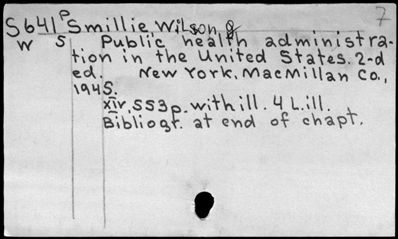 7
S641p Smillie, Wilson G
W S Public health administra-
tion in the United States. 2-d
ed. New York, MacMillan Co.,
1945.
XIV, 553 p. with ill. 4 L. ill.
Bibliogr. at end of chapt.